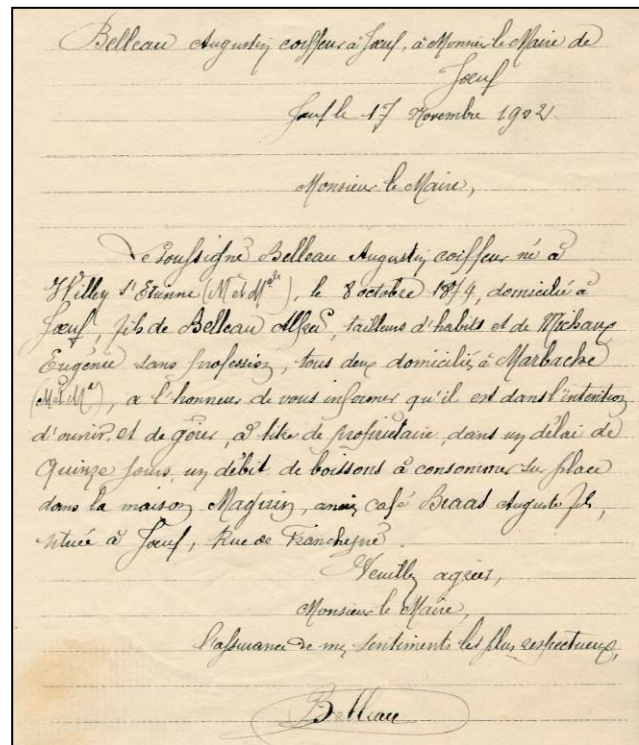 Belleau Augustin coiffeur à Jœuf, à Monsieur le Maire de
Jœuf
Jœuf le 17 Novembre 1902
Monsieur le Maire,
Le soussigné Belleau Augustin coiffeur né à
Villey St Etienne (M et Mlle), le 8 octobre 1874, domicilié à
Jœuf, fils de Belleau Alfred, tailleurs d'habits et de Michaux
Eugénie sans profession, tous deux domiciliés à Marbache
(M et Mlle), a l'honneur de vous informer qu'il est dans l'intention
d'ouvrir, et de gérer, à titre de propriétaire, dans un délai de
Quinze jours, un débit de boissons à consommer sur place
dans la maison Magisin, café Braas Auguste fils,
située à Jœuf, Rue de Franchepré.
Veuillez agréer,
Monsieur le Maire,
l'assurance de mes sentiments les plus respectueux,
Belleau